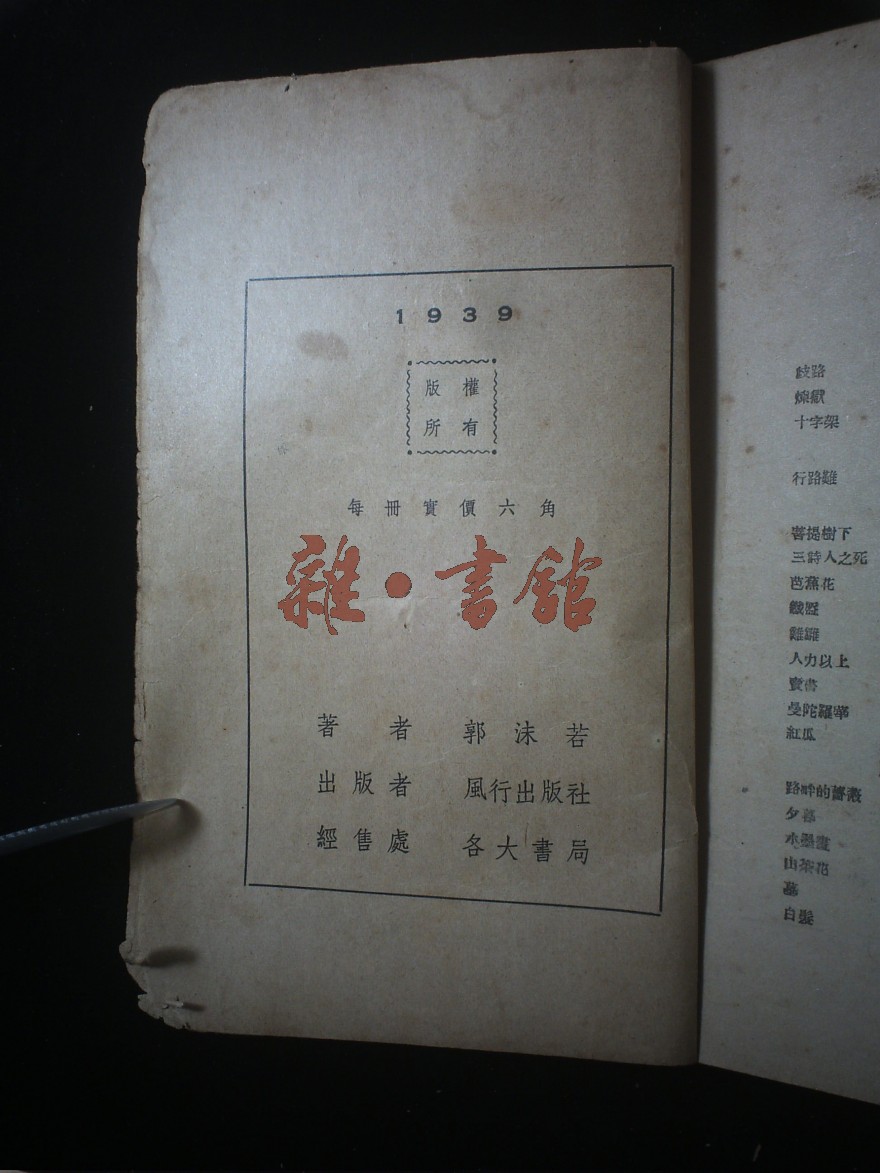 1939
版權
所有
每冊實價六角
雜·書館
著者 郭沫若
出版者 風行出版社
經售處 各大書局
歧路
煉獄
十字架
行路難
菩提樹下
三詩人之死
芭蕉花
鐵盔
雞雛
人力以上
賣書
曼陀羅華
紅瓜
路畔的薔薇
夕暮
水墨畫
山茶花
墓
白髮